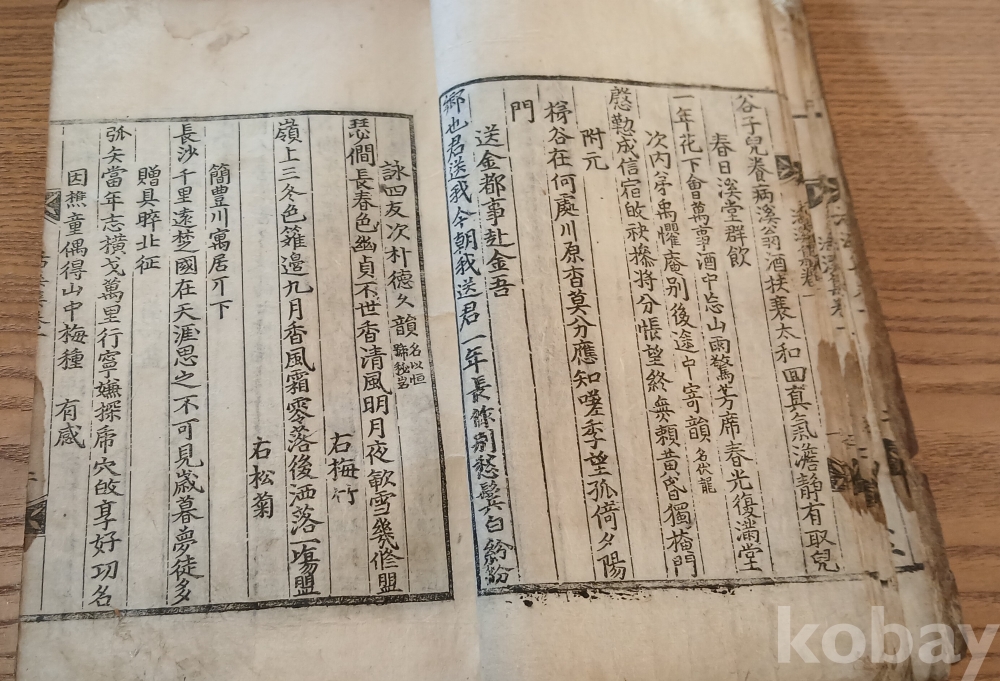 谷子兒養病溪翁酒扶衰太和回真氣澹靜有取兒
春日溪堂群飲
一年花下會萬事酒中忘山雨驚芳席春光復滿堂
次內弟禹懼菴別後途中寄韻 名伏龍
慇勤成信宿 袂摻將分悵望終無賴黃昏獨掩門
附元
梯谷在何處川原杳莫分應知嗟季望孤倚夕陽
門
送金都事赴金吾
鄉也君送我今朝我送君一年長作別愁鬢白紛紛
詠四友次朴德久韻 名以恒 號秘岩
瑟僩長春色幽貞不世香清風明月夜 雪幾修盟
右梅竹
嶺上三冬色籬邊九月香風霜零落後洒落一觴盟
右松菊
簡豊川寓居丌下
長沙千里遠梦國在天涯思之不可見歲暮夢徒多
贈具晬北征
弧矢當年志橫戈萬里行寧嫌探虎穴 享好功名
因樵童偶得山中梅種 有感
kobay